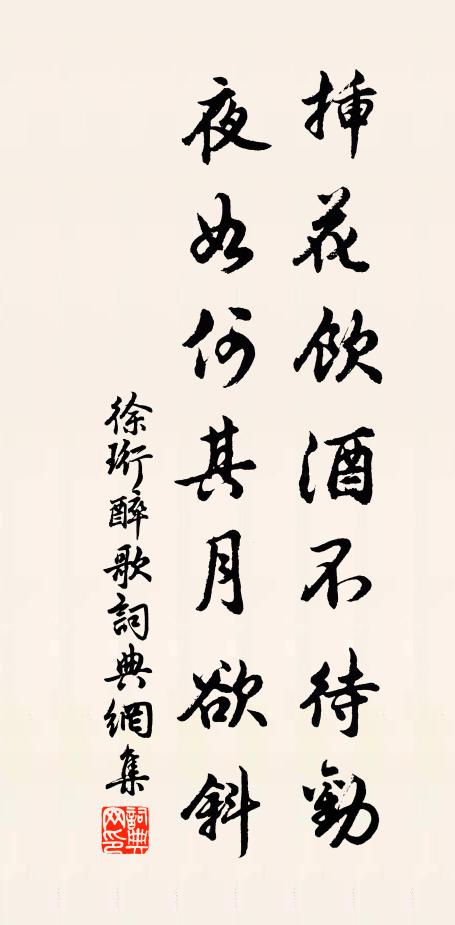 挿花飲酒不待勸
夜如何其月欲斜
徐珩醉歌詞典網集
詞典網印